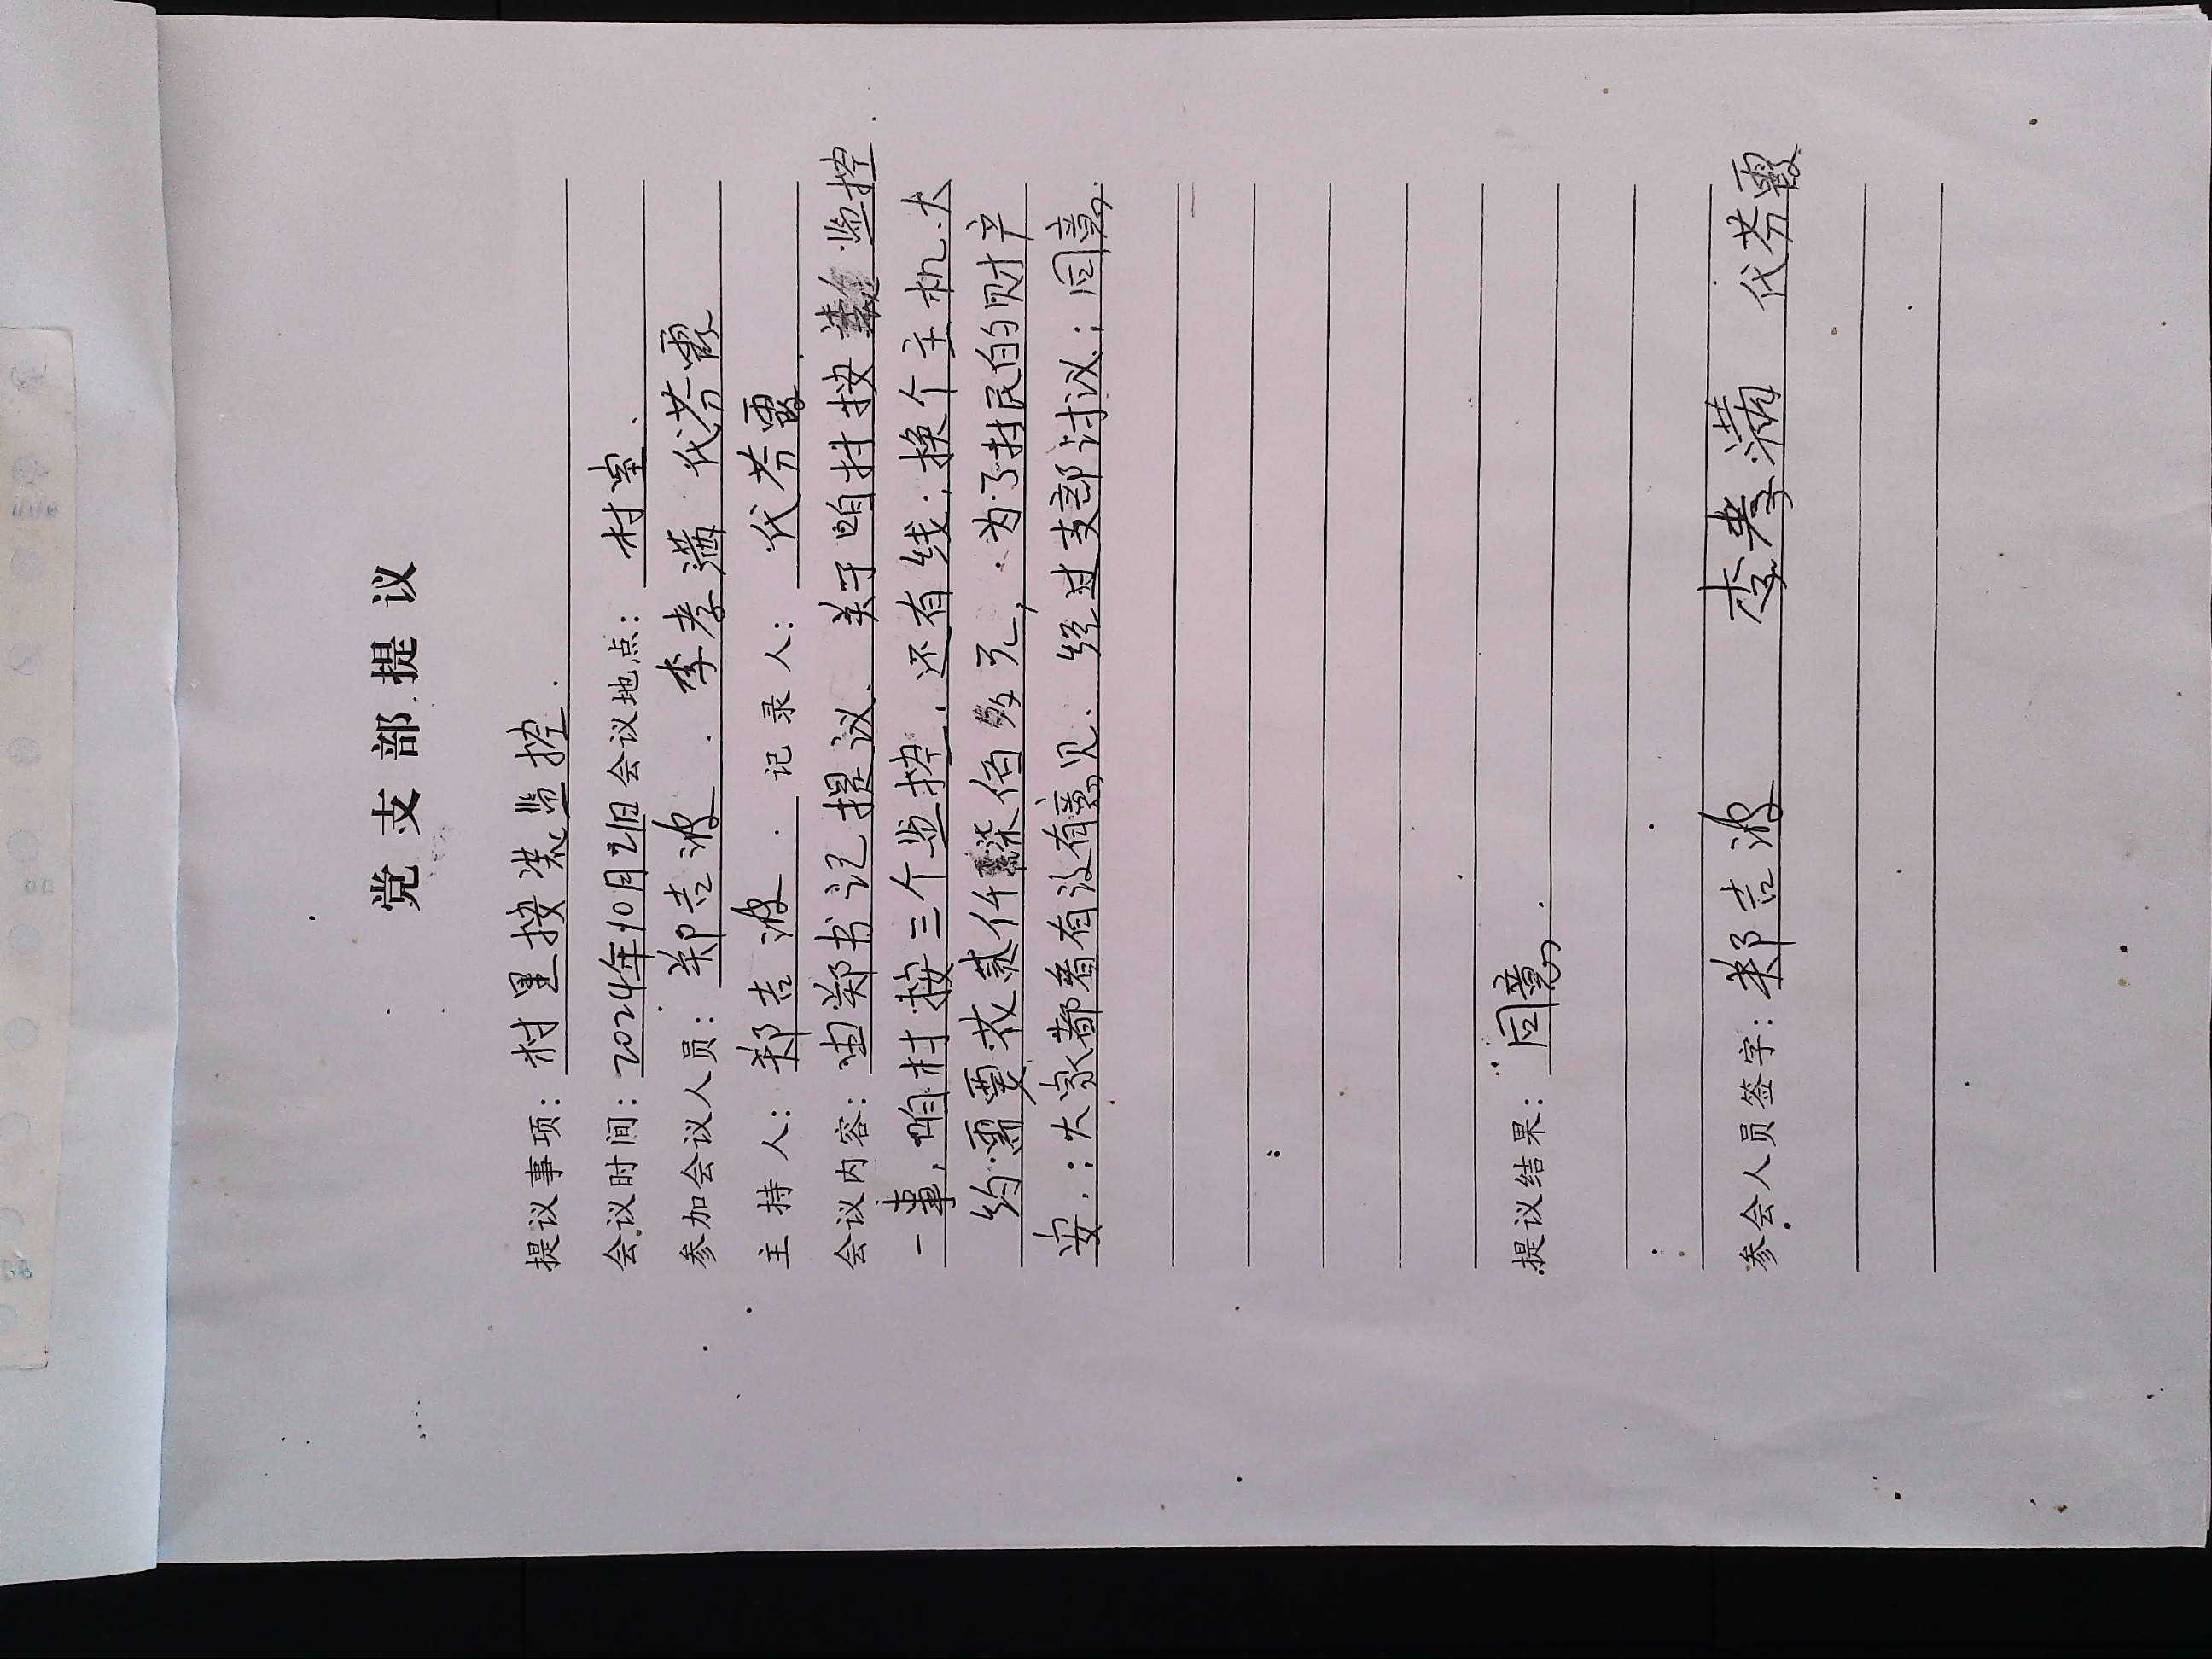 党支部提议
提议事项：村里按装监控.
会议时间：2024年10月21日会议地点：村室.
参加会议人员：郑吉波.李孝满 代芬霞
主持人：郑吉波.记录人：代芬霞
会议内容：由郑书记提议、关于咱村按监控
一事，咱村按三个监控，还有线；换个主机.大
约需要花贰仟柒佰多元，为了村民的财产
安.；大家都看有没有意见、经过支部讨议；同意.
提议结果：同意.
参会人员签字：郑吉波 李孝满 代芬霞